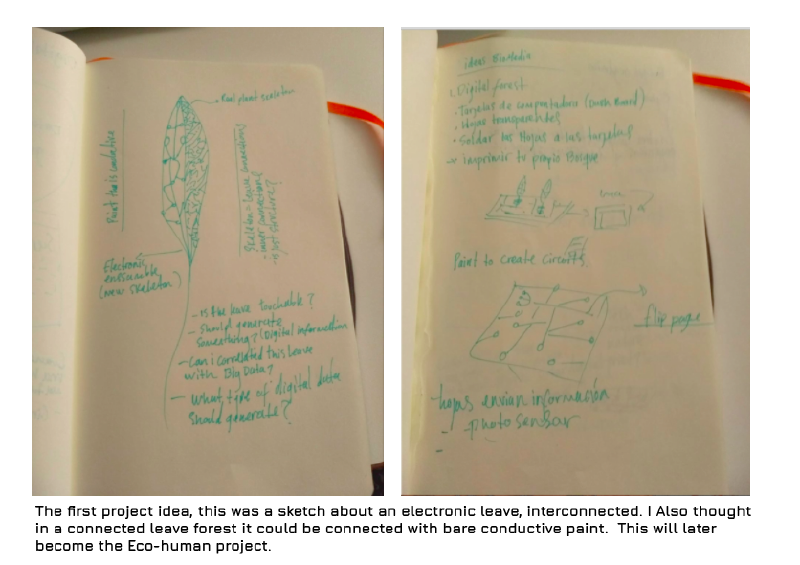 Real plant skeleton
Paint that is conductive
Skeleton = leave connections
- inner connections?
- is just structure?
Electronic
(new skeleton)
- Is the leave touchable?
- should generate
something? (Digital information
- can i correlated this leave
with Big Data?
- What, type of digital data
should generate?
ideas
Digital forest
• Tarjetas de computadora (Dash Board)
• Hojas transparentes
• Soldar las Hojas a las tarjetas
imprimir tu propio Bosque
Paint to create circuits
flip page
- hojas envian información
- photo sensor
-
The first project idea, this was a sketch about an electronic leave, interconnected. I Also thought
in a connected leave forest it could be connected with bare conductive paint.  This will later
become the Eco-human project.